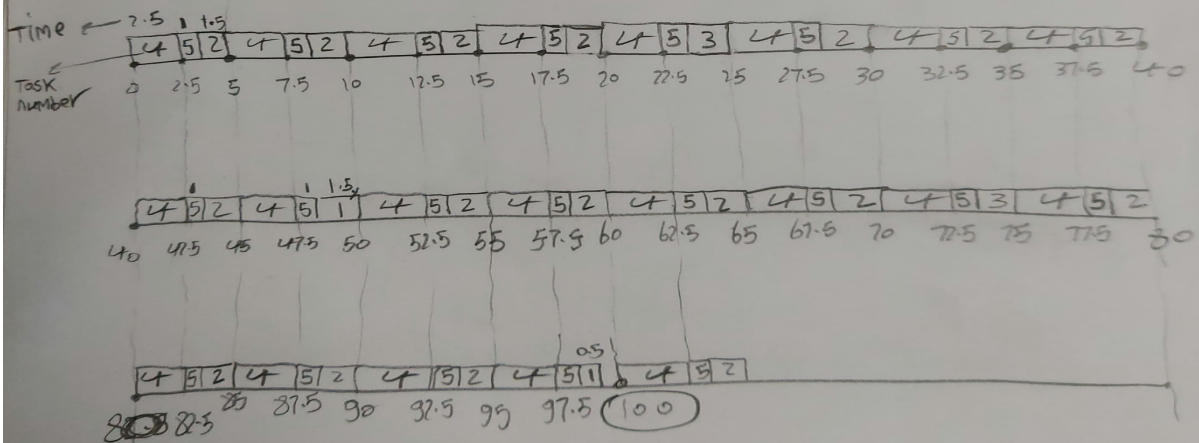 Time ← 2.5 1 1.5
4 5 2 4 5 2 4 5 2 4 5 2 4 5 3 4 5 2 4 5 2 4 5 2
Task number
0 2.5 5 7.5 10 12.5 15 17.5 20 22.5 25 27.5 30 32.5 35 37.5 40
1 1 1.5
4 5 2 4 5 1 4 5 2 4 5 2 4 5 2 4 5 2 4 5 3 4 5 2
40 42.5 45 47.5 50 52.5 55 57.5 60 62.5 65 67.5 70 72.5 75 77.5 80
0.5
4 5 2 4 5 2 4 5 2 4 5 1 4 5 2
82.5 85 87.5 90 92.5 95 97.5 100